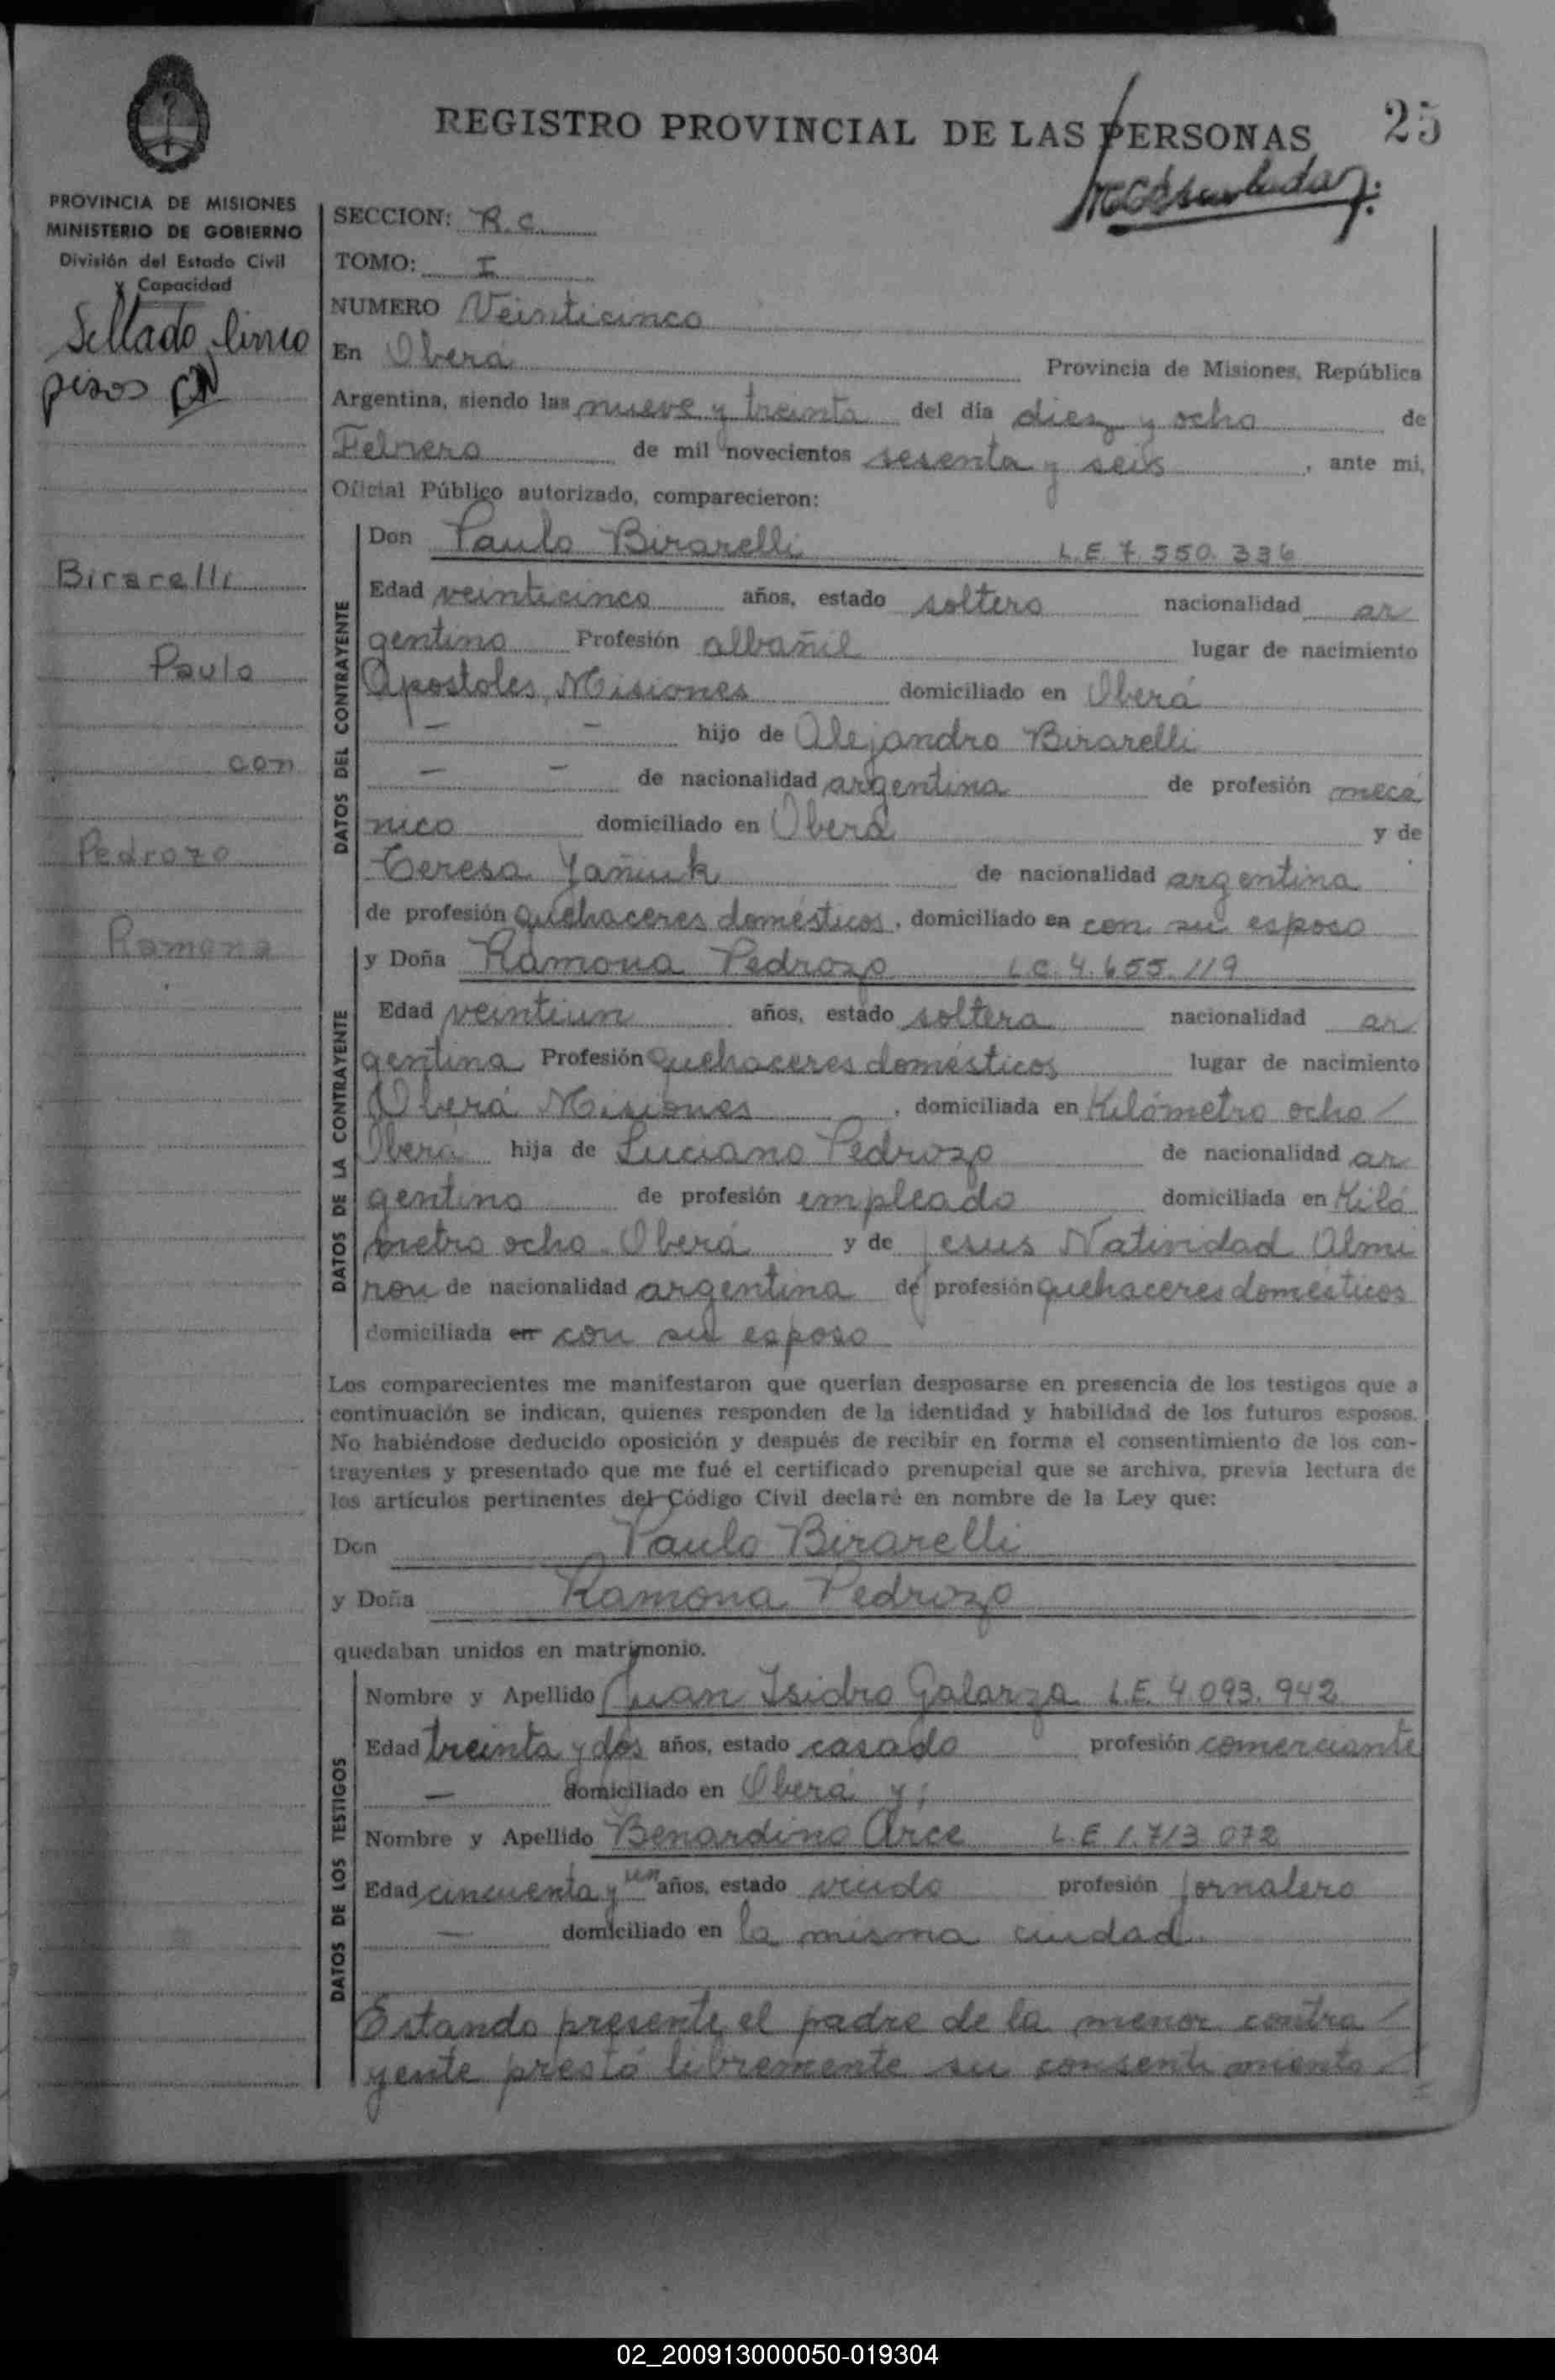 REGISTRO PROVINCIAL DE LAS PERSONAS
25
PROVINCIA DE MISIONES
MINISTERIO DE GOBIERNO
División del Estado Civil
y Capacidad
Sellado
pesos
Birarelli
Paulo
con
Pedrozo
Ramona
SECCION: R. C.
TOMO: I
NUMERO Veinticinco
En Oberá Provincia de Misiones, República
Argentina, siendo las nueve y treinta del día diez y ocho de
Febrero de mil novecientos sesenta y seis, ante mi,
Oficial Público autorizado, comparecieron:
DATOS DEL CONTRAYENTE
Don Paulo Birarelli L.E. 7.550.336
Edad veinticinco años, estado soltero nacionalidad ar
gentino Profesión albañil lugar de nacimiento
Apostoles, Misiones domiciliado en Oberá
— — hijo de Alejandro Birarelli
— — de nacionalidad argentina de profesión mecá
nico domiciliado en Oberá y de
Teresa Yañuk de nacionalidad argentina
de profesión quehaceres domésticos, domiciliado en con su esposo
DATOS DE LA CONTRAYENTE
y Doña Ramona Pedrozo L.C. 4.655.119
Edad veintiun años, estado soltera nacionalidad ar
gentina Profesión quehaceres domésticos lugar de nacimiento
Oberá Misiones, domiciliada en Kilómetro ocho /
Oberá hija de Luciano Pedrozo de nacionalidad ar
gentino de profesión empleado domiciliada en Kiló
metro ocho. Oberá y de Jesus Natividad Almi
ron de nacionalidad argentina de profesión quehaceres domésticos
domiciliada en con su esposo
Los comparecientes me manifestaron que querían desposarse en presencia de los testigos que a
continuación se indican, quienes responden de la identidad y habilidad de los futuros esposos.
No habiéndose deducido oposición y después de recibir en forma el consentimiento de los con-
trayentes y presentado que me fué el certificado prenupcial que se archiva, previa lectura de
los artículos pertinentes del Código Civil declaré en nombre de la Ley que:
Don Paulo Birarelli
y Doña Ramona Pedrozo
quedaban unidos en matrimonio.
DATOS DE LOS TESTIGOS
Nombre y Apellido Juan Isidro Galarza L.E. 4.093.942
Edad treinta y dos años, estado casado profesión comerciante
— domiciliado en Oberá y;
Nombre y Apellido Benardino Arce L.E 1.713.072
Edad cincuenta y un años, estado viudo profesión jornalero
— domiciliado en la misma ciudad.
Estando presente el padre de la menor contra /
yente prestó libremente su consentimiento /
02_200913000050-019304